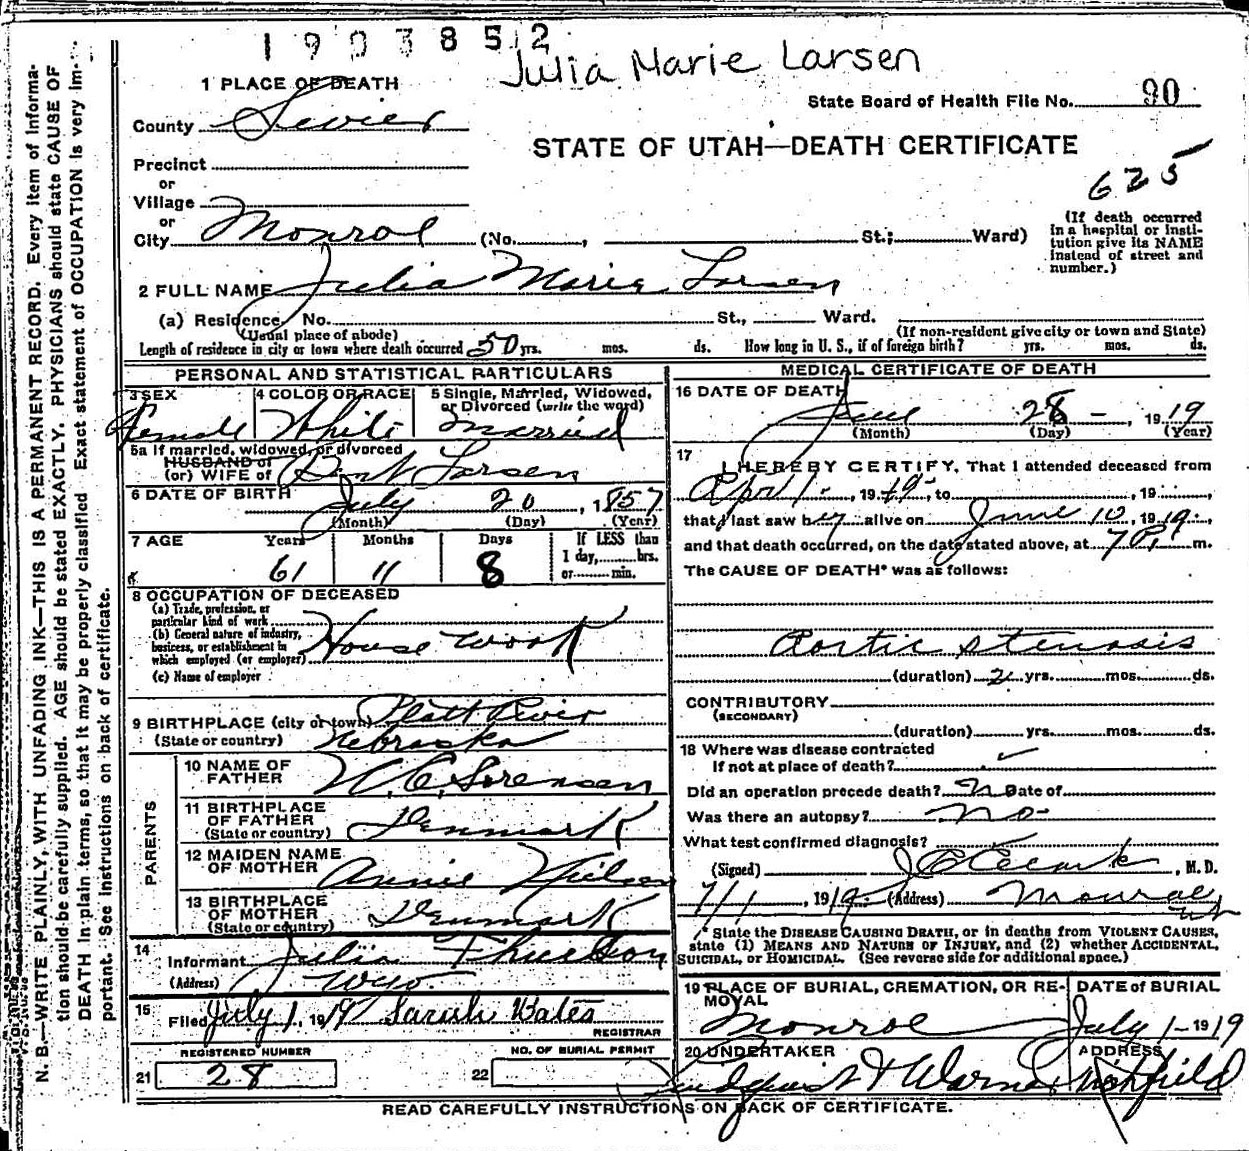 1903852
Julia Marie Larsen
1 PLACE OF DEATH
State Board of Health File No. 90
County Sevier
STATE OF UTAH—DEATH CERTIFICATE
Precinct
625
or
Village
or
City Monroe (No. , St.; Ward)
(If death occurred in a hospital or institution give its NAME instead of street and number.)
2 FULL NAME Julia Marie Larsen
(a) Residence, No. St., Ward.
(Usual place of abode) (If non-resident give city or town and State)
Length of residence in city or town where death occurred 50 yrs. mos. ds. How long in U. S., if of foreign birth? yrs. mos. ds.
PERSONAL AND STATISTICAL PARTICULARS
3 SEX 4 COLOR OR RACE 5 Single, Married, Widowed, or Divorced (write the word)
Female White Married
5a If married, widowed, or divorced
HUSBAND of
(or) WIFE of Bent Larsen
6 DATE OF BIRTH July 20, 1857
(Month) (Day) (Year)
7 AGE Years Months Days If LESS than
1 day, hrs.
61 11 8 or min.
8 OCCUPATION OF DECEASED
(a) Trade, profession, or
particular kind of work
(b) General nature of industry,
business, or establishment in
which employed (or employer) House work
(c) Name of employer
9 BIRTHPLACE (city or town) Platt River
(State or country) Nebraska
PARENTS
10 NAME OF FATHER N. C. Sorensen
11 BIRTHPLACE OF FATHER
(State or country) Denmark
12 MAIDEN NAME OF MOTHER Annie Nielsen
13 BIRTHPLACE OF MOTHER
(State or country) Denmark
14
Informant Julia
(Address) Wyo.
15
Filed July 1, 1919 Sarah Bates
REGISTRAR
REGISTERED NUMBER NO. OF BURIAL PERMIT
21 28 22
MEDICAL CERTIFICATE OF DEATH
16 DATE OF DEATH
June 28 - , 1919
(Month) (Day) (Year)
17
I HEREBY CERTIFY, That I attended deceased from
April - , 1919, to , 19 ,
that I last saw her alive on June 10, 1919,
and that death occurred, on the date stated above, at 7 P. m.
The CAUSE OF DEATH* was as follows:
Aortic stenosis
(duration) 2 yrs. mos. ds.
CONTRIBUTORY
(SECONDARY)
(duration) yrs. mos. ds.
18 Where was disease contracted
If not at place of death?
Did an operation precede death? No Date of
Was there an autopsy? No-
What test confirmed diagnosis?
(Signed) , M. D.
7/1, 1919 (Address) Monroe, Ut
*State the DISEASE CAUSING DEATH, or in deaths from VIOLENT CAUSES,
state (1) MEANS AND NATURE OF INJURY, and (2) whether ACCIDENTAL,
SUICIDAL, or HOMICIDAL. (See reverse side for additional space.)
19 PLACE OF BURIAL, CREMATION, OR REMOVAL DATE of BURIAL
Monroe July 1-1919
20 UNDERTAKER ADDRESS
Richfield
READ CAREFULLY INSTRUCTIONS ON BACK OF CERTIFICATE.
N. B.—WRITE PLAINLY, WITH UNFADING INK—THIS IS A PERMANENT RECORD. Every item of informa-
tion should be carefully supplied. AGE should be stated EXACTLY. PHYSICIANS should state CAUSE OF
DEATH in plain terms, so that it may be properly classified. Exact statement of OCCUPATION is very im-
portant. See instructions on back of certificate.